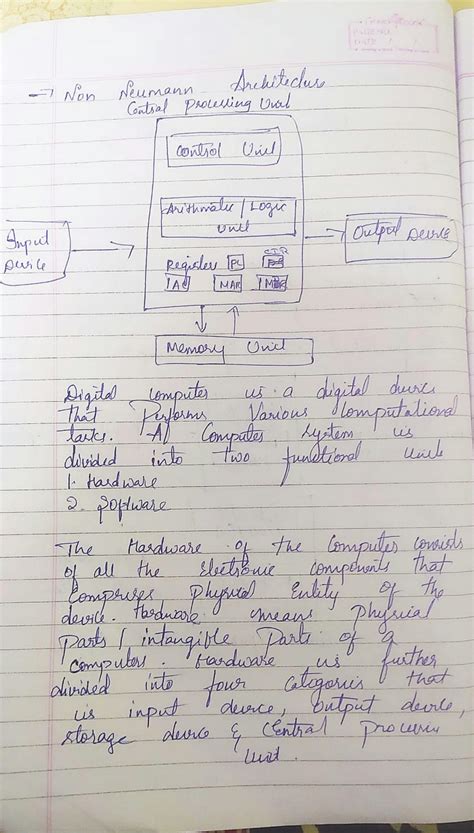 → Non Neumann Architecture
Central Processing Unit
Control Unit
Arithmatic / Logic
Unit
Input
Device
Output Device
Register PC
AC MAR
Memory Unit
Digital Computer is a digital device
that Performs Various Computational
tasks. A Computer System is
divided into two functional Units
1. Hardware
2. Software
The Hardware of the Computer consists
of all the Electronic components that
Comprises Physical Entity of the
device. Hardware means Physical
Parts / intangible Parts of a
Computers. Hardware is further
divided into four Catogories that
is input device, output device,
storage device & Central Processing
Unit.